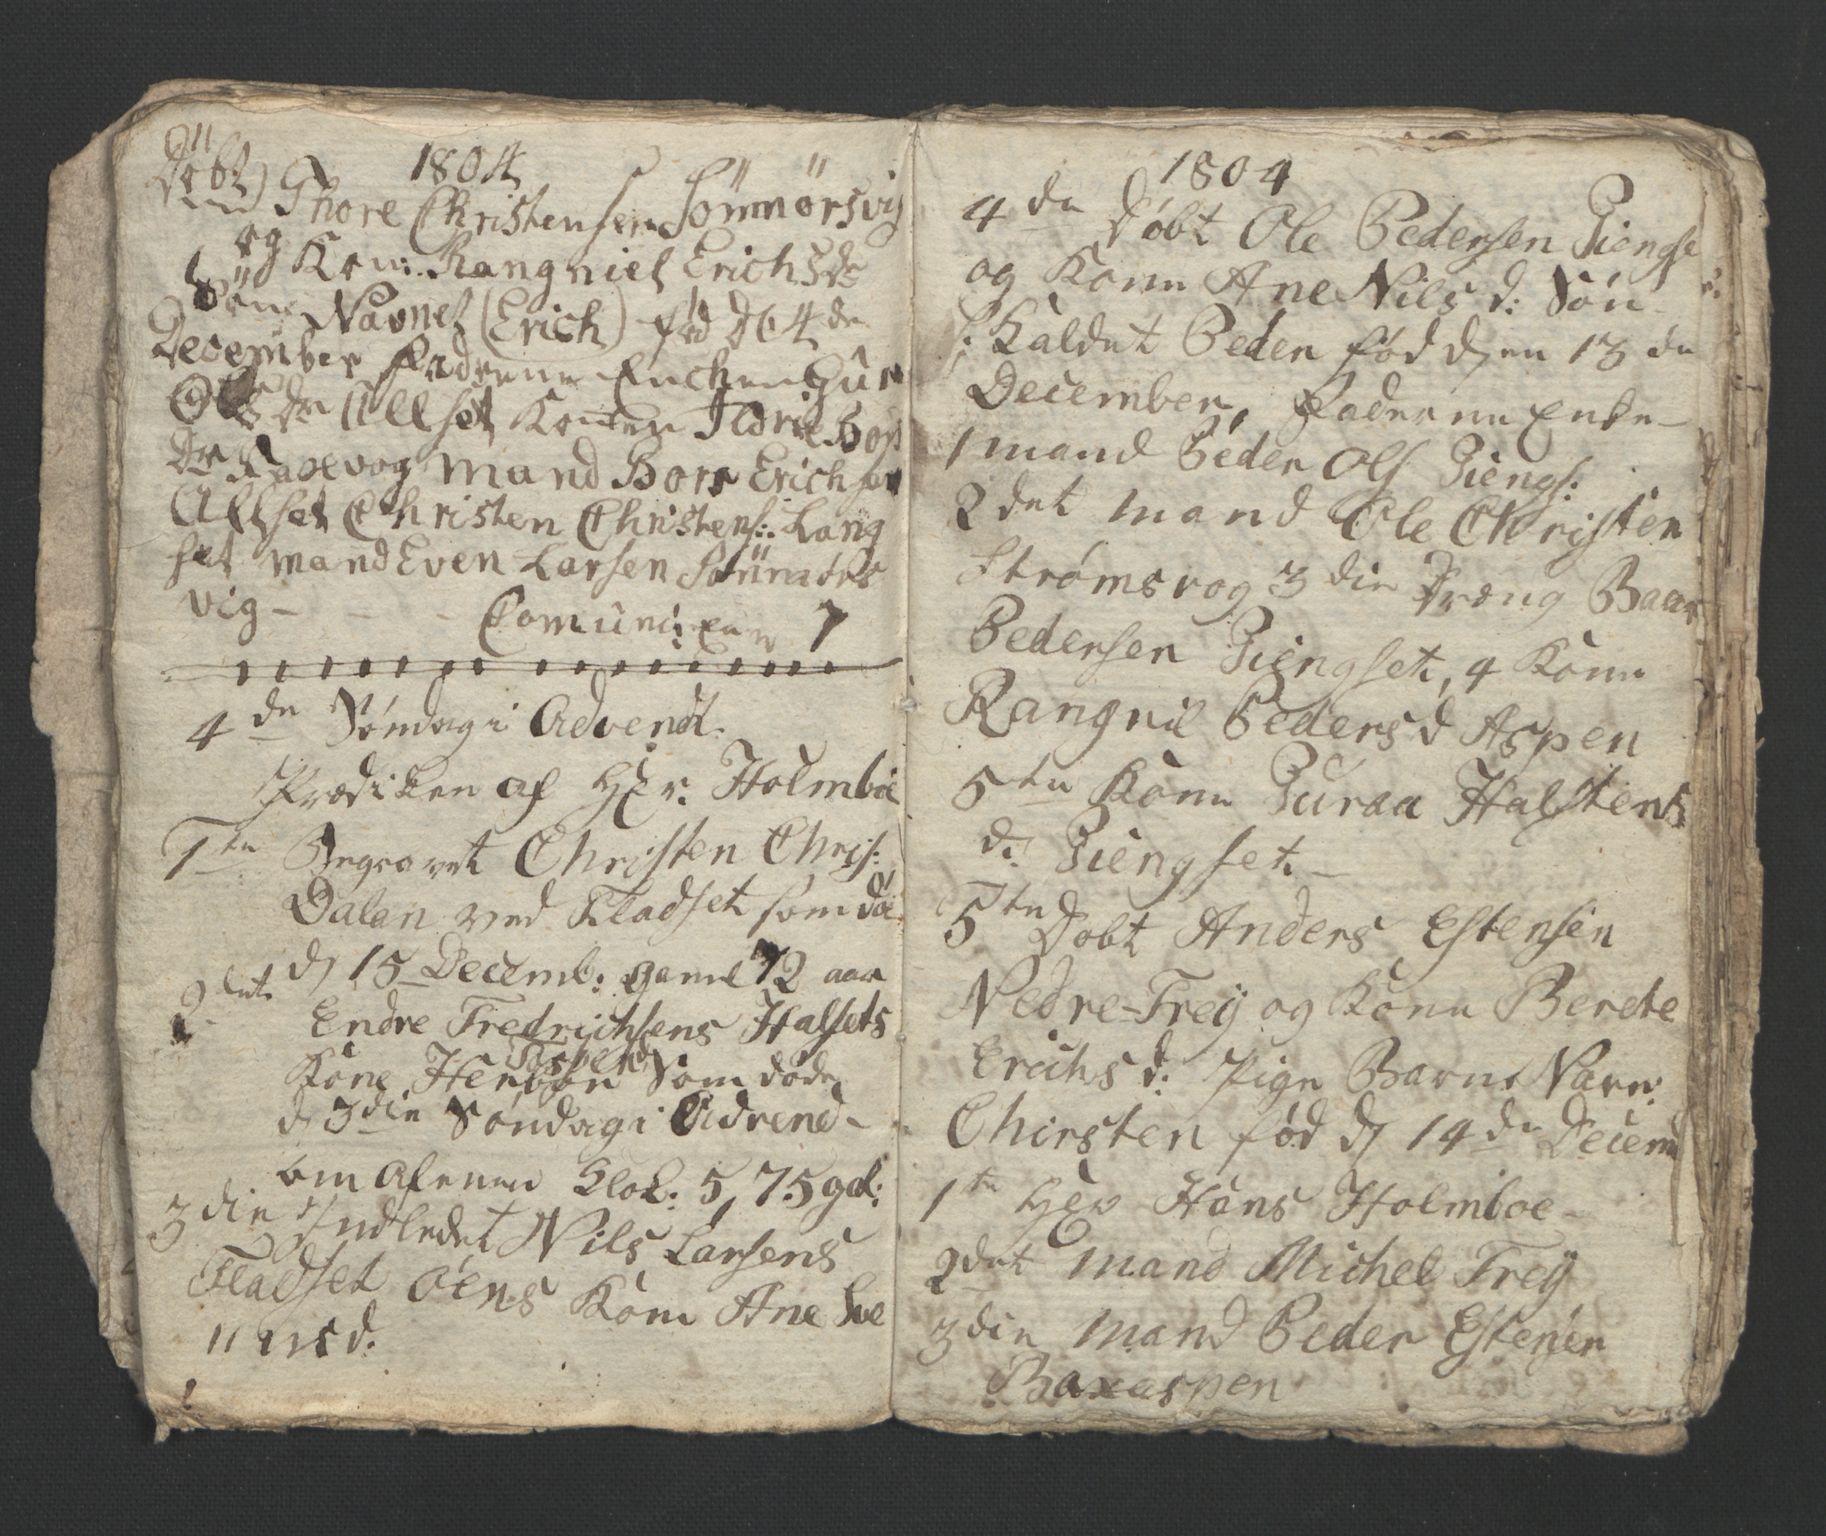 1804
Döbt Thore Christensen Sönmörsvig
og Kone: Rangniel Erichsdr
Sön Navnet (Erich) fød d 4 de
December Faderene Enchen Gur
Ols Dr Allset Konen Ildri Bors
Dr Ravevog Mand Bors Erichsen
Allset Christen Christens: Lang
set mand Even Larsen Sönmörs
vig - - - - Comuni: 7
4 de Søndag i Advendt.
Prædiken af Her. Holmboe
1 te Begravet Christen Chris:
Dalan ved Fladset som döe
d 15 Decemb: gamel 72 aar
2 det Endre Fredrichsens Halsets
Kone Som døde
d 3 die Søndag i Advend-
om afenen Klok: 5, 75 gal:
3 die Indledet Nils Larsens
Fladset öens Kone Ane Sve
nnsd:
1804
4 de Døbt Ole Pedersen Giengse
og Kone Ane Nils d: Søn
Kaldet Peder fød djen 13 de
December, Faderne Ente-
1 mand Peder Ols Giengs:
2 det mand Ole Christen
Strømsvog 3 die Dreng Baar
Pedersen Giengset, 4 Kone
Rangnil Peders d Aspen
5 te Kone Guraa Halstens
d: Giengset -
5 te Døbt Anders Estensen
Nedre-Freÿ og Kone Berete
Erichs d: Pige Barns Navn:
Chirsten fød dj 14 de Decem
1 te Her Hans Holmboe -
2 det mand Michel Freÿ
3 die mand Peder Estensen
Baxaspen